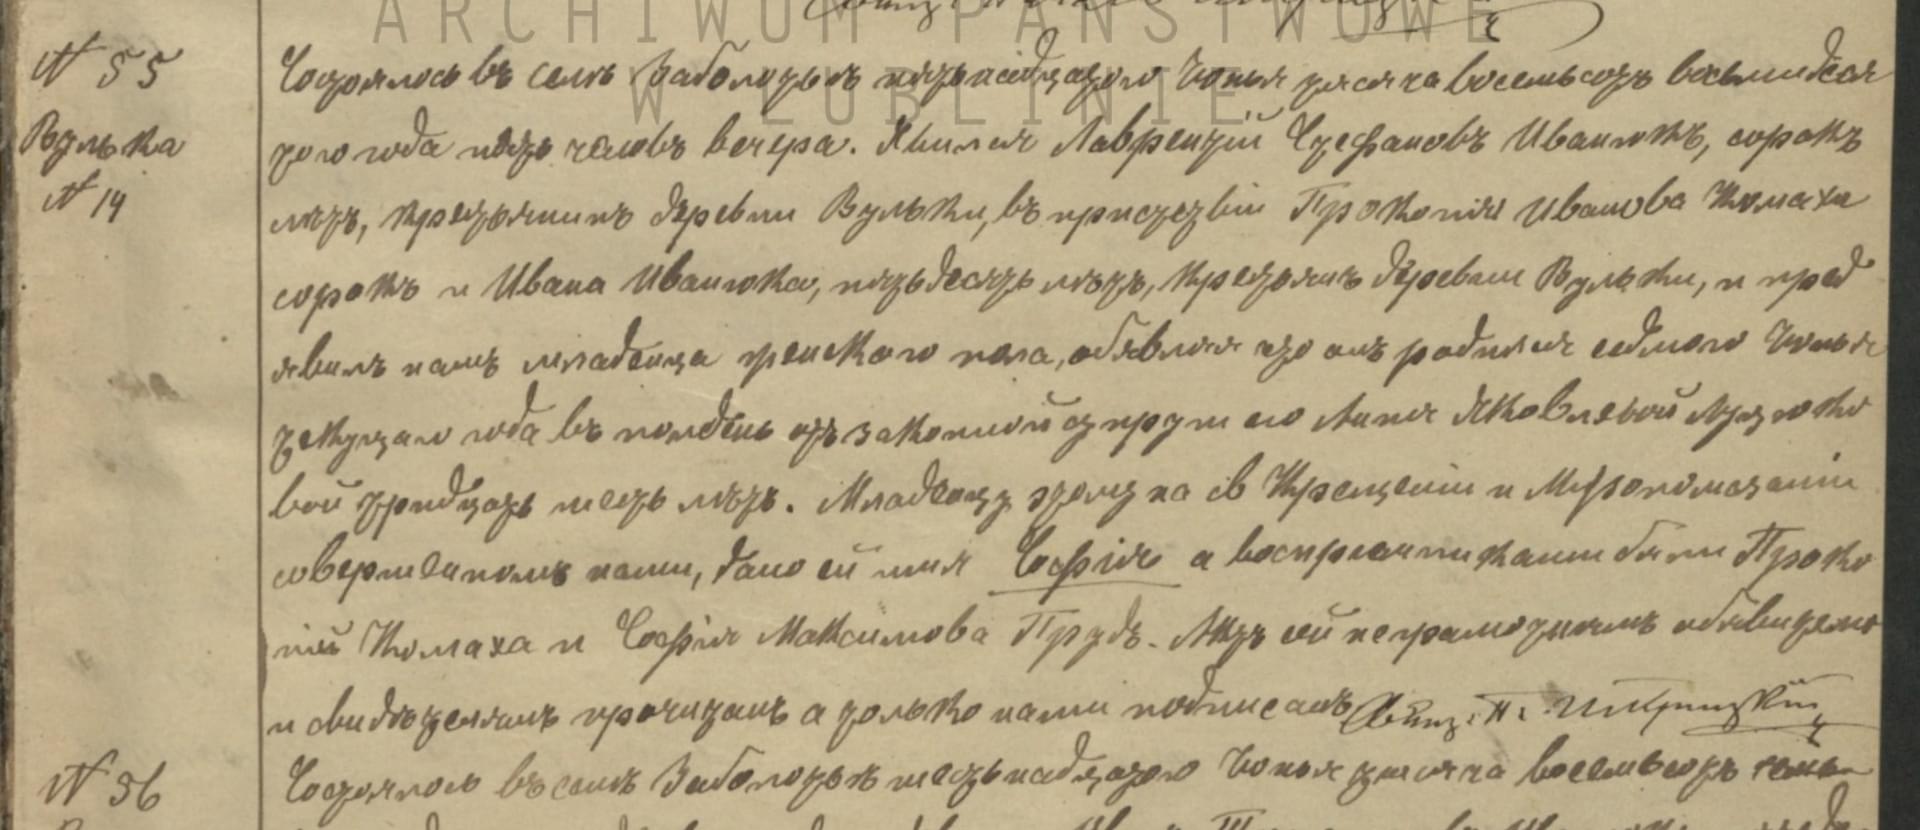 ARCHIWUM PAŃSTWOWE
W LUBLINIE
N 55
Вулька
N 14
Состоялось въ селѣ Заболотьѣ пятьнадцатого Іюня тысяча восемьсотъ восьмидеся
того года пять часовъ вечера. Явился Лаврентій Стефановъ Иванюкъ, сорокъ
лѣтъ, крестьянинъ деревни Вульки, въ присутствіи Прокопія Иванова Комаха
сорокъ и Ивана Иванюка, пятьдесятъ лѣтъ, крестьянъ деревни Вульки, и пред
явилъ намъ младенца женского пола, обявляя что онъ родился седмого Іюня
текущаго года въ полдень отъ законной супруги его Анны Яковлевой
вой тридцать шесть лѣтъ. Младенцу этому на св Крещеніи и Мѵропомазаніи
совершенномъ нами, дано ей имя Софія а воспріемниками были Проко
пій Комаха и Софія Максимова Прудъ. Актъ сей неграмотнымъ обявителю
и свидѣтелямъ прочитанъ а только нами подписанъ
N 56
Состоялось въ селѣ Заболотьѣ шестьнадцатого Іюня тысяча восемьсотъ